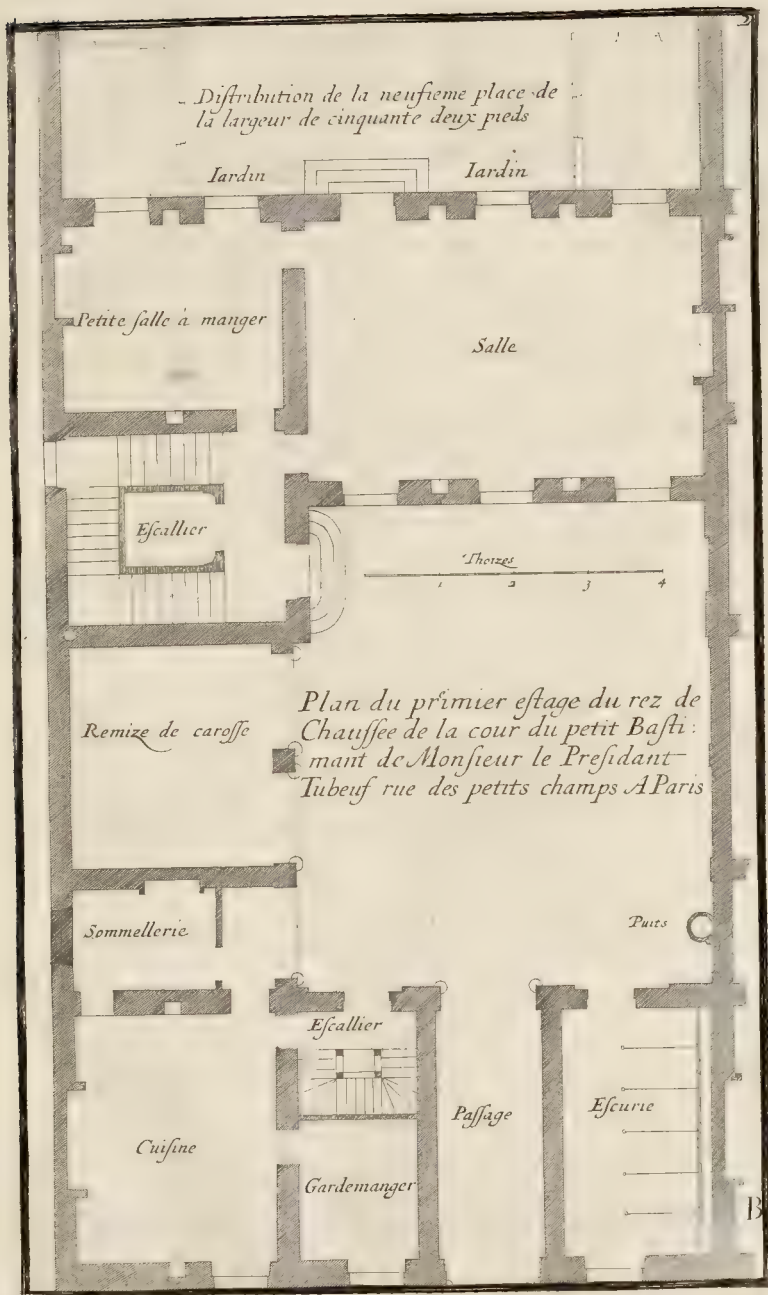 Diſtribution de la neufieme place de
la largeur de cinquante deux pieds
Iardin
Iardin
Petite ſalle à manger
Salle
Eſcallier
Thoizes
1 2 3 4
Remize de caroſſe
Plan du primier eſtage du rez de
Chauſſee de la cour du petit Baſti:
mant de Monſieur le Preſidant
Tubeuf rue des petits champs A Paris
Sommellerie
Puits
Eſcallier
Paſſage
Eſcurie
Cuiſine
Gardemanger
B